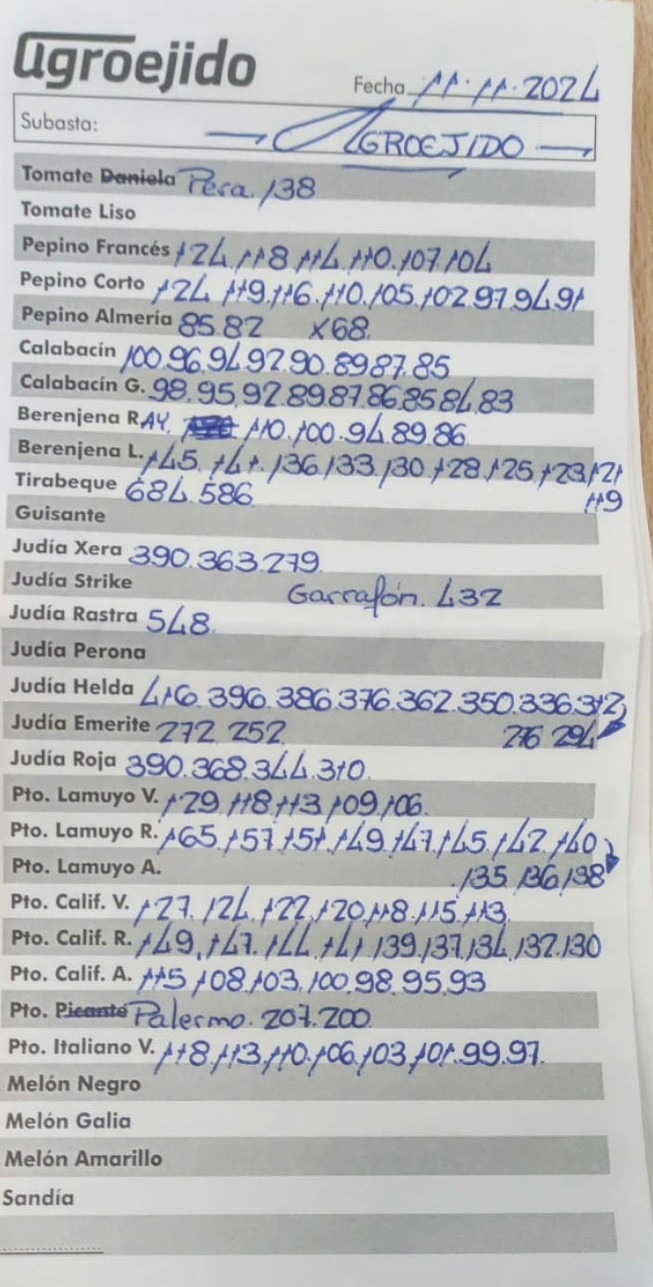 agroejido
Fecha 11.11.2024
Subasta: AGROEJIDO
Tomate Daniela Pera. 138
Tomate Liso
Pepino Francés 124.118.114.110.107.104
Pepino Corto 124.119.116.110.105.102.97.94.91
Pepino Almería 85.82 x68.
Calabacín 100.96.94.92.90.89.87.85
Calabacín G. 98.95.92.89.87.86.85.84.83
Berenjena RAY. 110.100.94.89.86
Berenjena L. 145.141.136.133.130.128.125.123.121
119
Tirabeque 684.586
Guisante
Judía Xera 390.363.279.
Judía Strike Garrafón. 432
Judía Rastra 548.
Judía Perona
Judía Helda 416.396.386.376.362.350.336.312
Judía Emerite 272.252 276 294
Judía Roja 390.368.344.310.
Pto. Lamuyo V. 129.118.113.109.106.
Pto. Lamuyo R. 165.157.151.149.147.145.142.140
Pto. Lamuyo A. 135.136.138
Pto. Calif. V. 127.124.122.120.118.115.113.
Pto. Calif. R. 149.147.144.141.139.137.134.132.130
Pto. Calif. A. 115.108.103.100.98.95.93
Pto. Picante Palermo. 207.200.
Pto. Italiano V. 118.113.110.106.103.101.99.97.
Melón Negro
Melón Galia
Melón Amarillo
Sandía